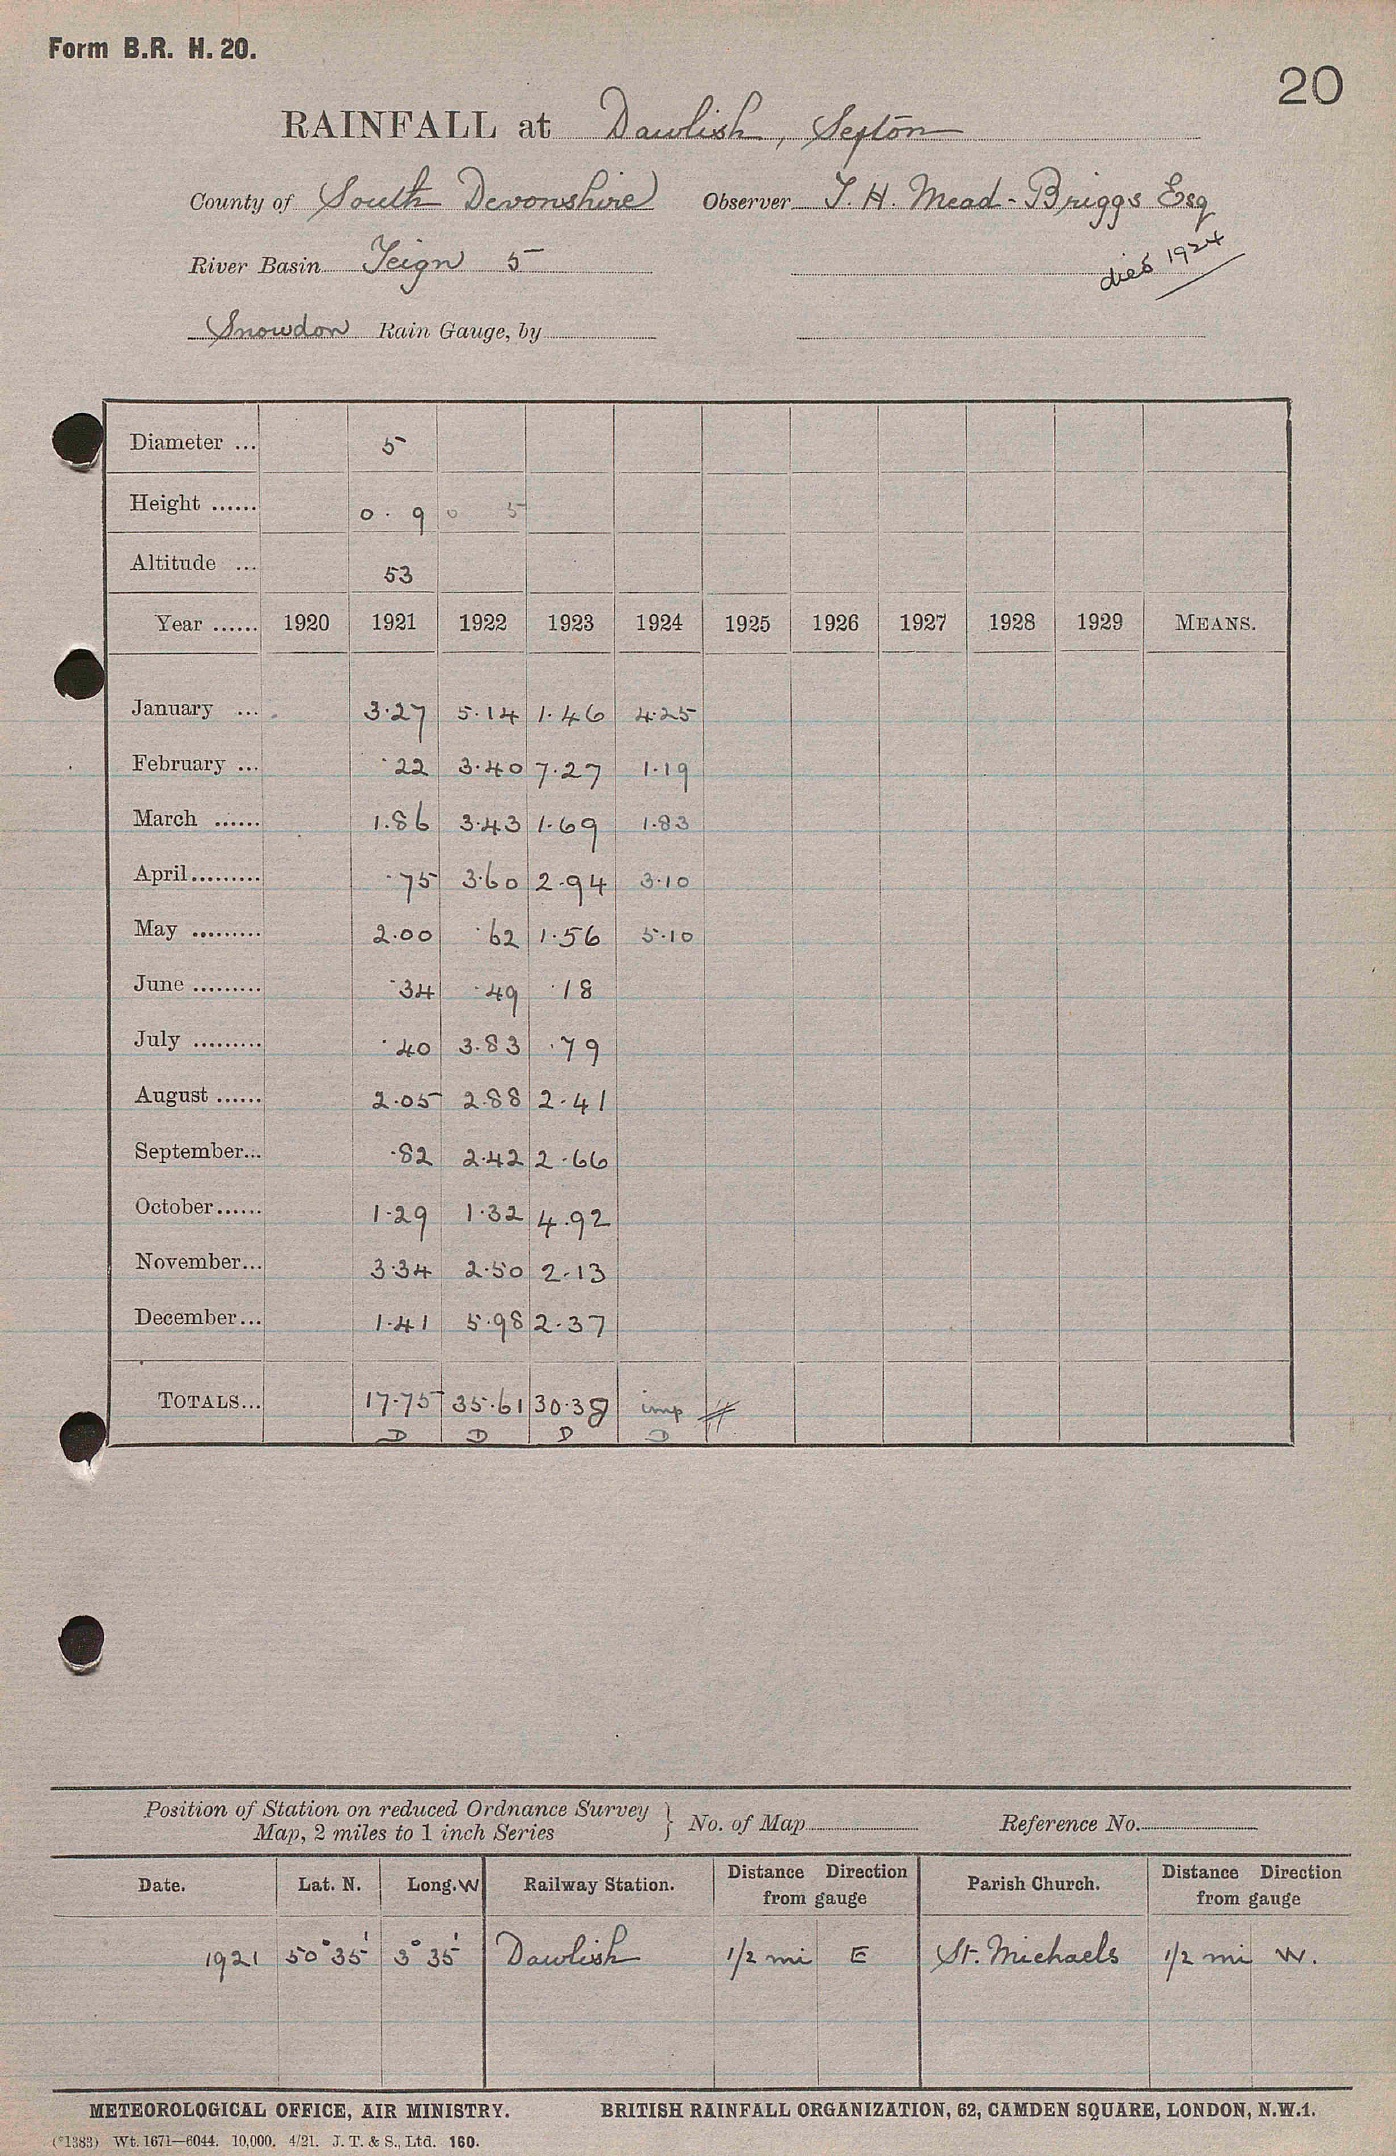 Form B.R. H. 20.
20
RAINFALL at Dawlish, Sefton
County of South Devonshire Observer T. H. Mead-Briggs Esq
River Basin Teign 5 died 1924
Snowdon Rain Gauge, by
Diameter ... 5
Height ...... 0 . 9 0 5
Altitude ... 53
Year ...... 1920 1921 1922 1923 1924 1925 1926 1927 1928 1929 MEANS.
January ... 3.27 5.14 1.46 4.25
February ... .22 3.40 7.27 1.19
March ...... 1.86 3.43 1.69 1.83
April......... .75 3.60 2.94 3.10
May ......... 2.00 .62 1.56 5.10
June ......... .34 .49 .18
July ......... .40 3.83 .79
August ...... 2.05 2.88 2.41
September... .82 2.42 2.66
October...... 1.29 1.32 4.92
November... 3.34 2.50 2.13
December... 1.41 5.98 2.37
TOTALS... 17.75 35.61 30.38 imp
D D D D
Position of Station on reduced Ordnance Survey
Map, 2 miles to 1 inch Series } No. of Map Reference No.
Date. Lat. N. Long. W Railway Station. Distance Direction from gauge Parish Church. Distance Direction from gauge
1921 50° 35' 3° 35' Dawlish 1/2 mi E St. Michaels 1/2 mi W.
METEOROLOGICAL OFFICE, AIR MINISTRY. BRITISH RAINFALL ORGANIZATION, 62, CAMDEN SQUARE, LONDON, N.W.1.
(*1383) Wt. 1671—6044. 10,000. 4/21. J. T. & S., Ltd. 160.